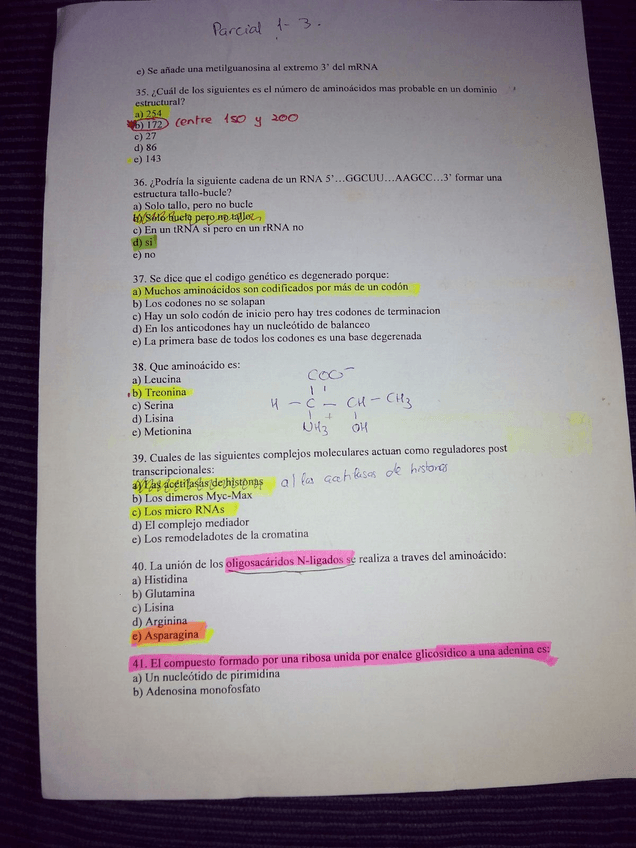 Parcial 1-3.
e) Se añade una metilguanosina al extremo 3' del mRNA
35. ¿Cuál de los siguientes es el número de aminoácidos mas probable en un dominio
estructural?
a) 254
b) 172 (entre 150 y 200
c) 27
d) 86
e) 143
36. ¿Podría la siguiente cadena de un RNA 5'…GGCUU…AAGCC…3' formar una
estructura tallo-bucle?
a) Solo tallo, pero no bucle
b) Solo bucle pero no tallo
c) En un tRNA si pero en un rRNA no
d) si
e) no
37. Se dice que el codigo genético es degenerado porque:
a) Muchos aminoácidos son codificados por más de un codón
b) Los codones no se solapan
c) Hay un solo codón de inicio pero hay tres codones de terminacion
d) En los anticodones hay un nucleótido de balanceo
e) La primera base de todos los codones es una base degerenada
38. Que aminoácido es:
a) Leucina
b) Treonina
c) Serina
d) Lisina
e) Metionina
COO-
H - C - CH - CH3
+
NH3 OH
39. Cuales de las siguientes complejos moleculares actuan como reguladores post
transcripcionales:
a) Las acetilasas de histonas a) las acetilasas de histonas
b) Los dimeros Myc-Max
c) Los micro RNAs
d) El complejo mediador
e) Los remodeladotes de la cromatina
40. La unión de los oligosacáridos N-ligados se realiza a traves del aminoácido:
a) Histidina
b) Glutamina
c) Lisina
d) Arginina
e) Asparagina
41. El compuesto formado por una ribosa unida por enalce glicosidico a una adenina es:
a) Un nucleótido de pirimidina
b) Adenosina monofosfato